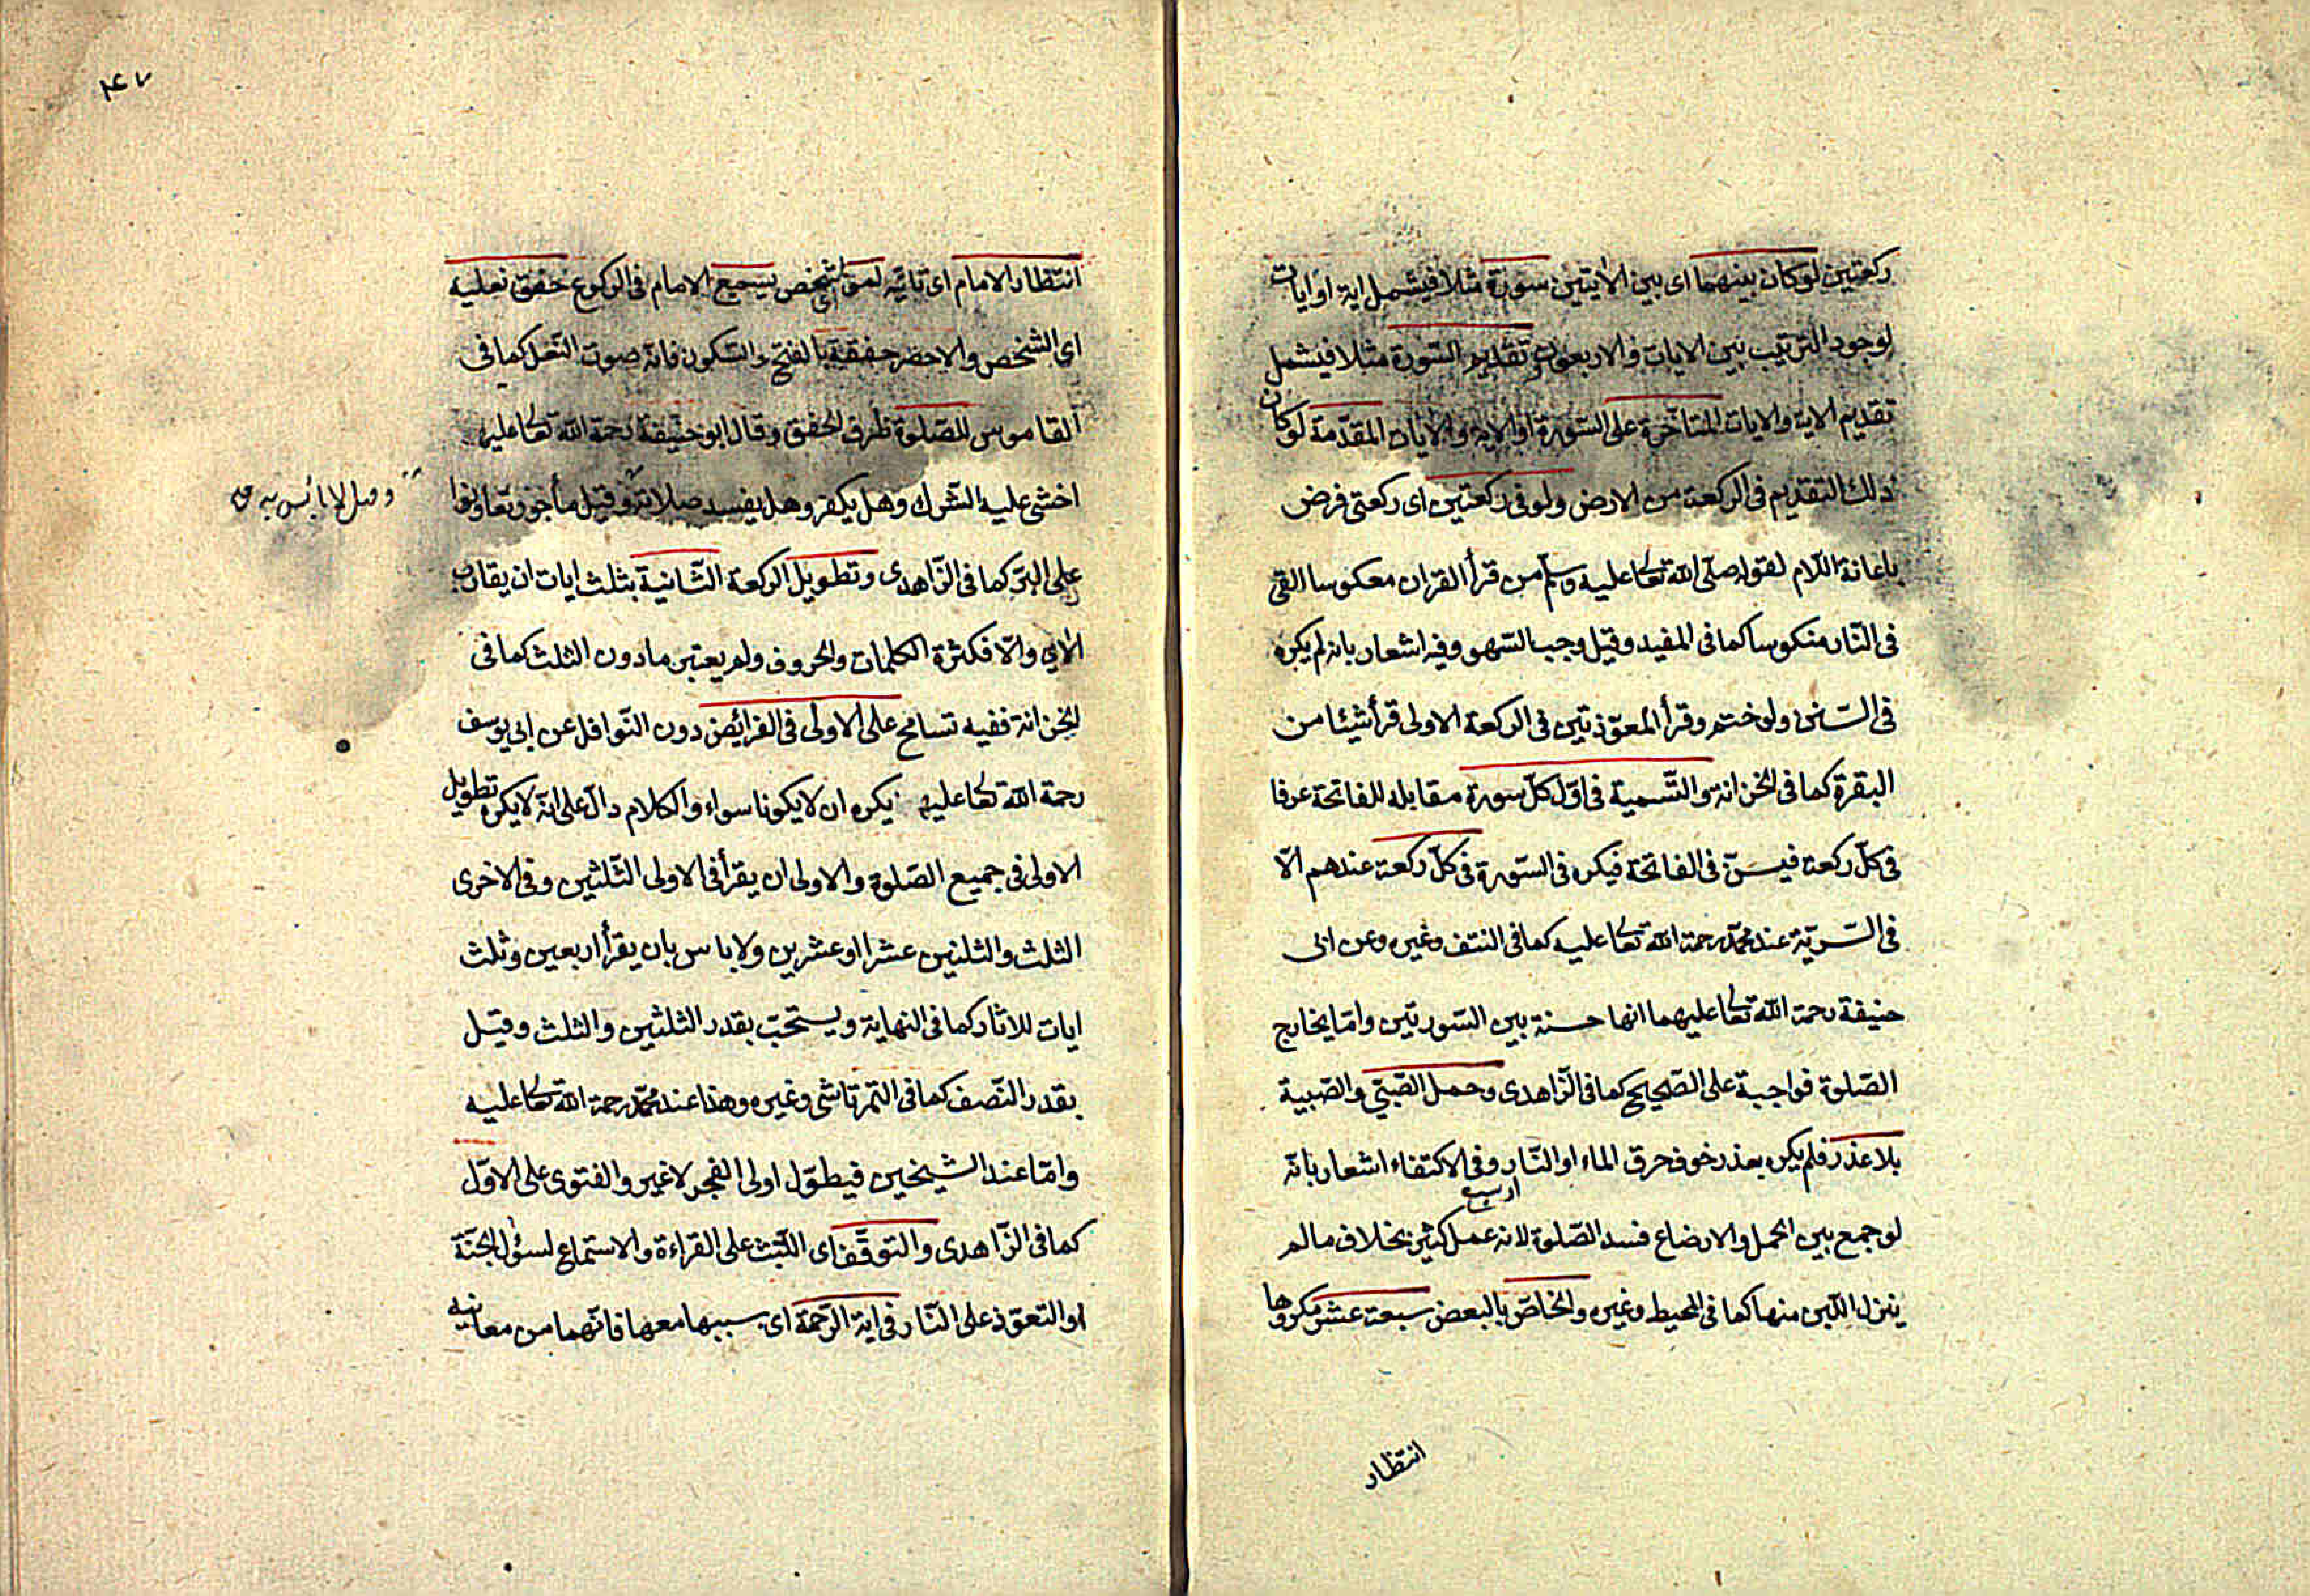 ركعتين لوكان بينهما اى بين الايتين سورة مثلا فيشمل اية او ايات
لوجود الترتيب بين الايات والاربعون تقديم السورة مثلا فيشمل
تقديم الاية والايات المتأخرة على السورة او الاية والايات المقدّمة لوكان
ذلك التقديم فى الركعة من الارض ولو فى ركعتين اى ركعتى فرض
باعانة اللام لقوله صلّى الله تعالى عليه وسلّم من قرأ القران معكوسا القى
فى النّار منكوسا كما فى المفيد وقيل وجب السّهو وفيه اشعار بانه لم يكره
فى السّنن ولو ختم وقرأ المعوّذتين فى الركعة الاولى قرأ شيئا من
البقرة كما فى الخزانة والتّسمية فى اوّل كلّ سورة مقابلة للفاتحة عرفا
فى كلّ ركعة فيسنّ فى الفاتحة فيكره فى السّورة فى كلّ ركعة عندهم الّا
فى السّريّة عند محمّد رحمة الله تعالى عليه كما فى النتف وغيره وعن ابى
حنيفة رحمة الله تعالى عليهما انها حسنة بين السّورتين وامّا يخارج
الصّلوة فواجبة على الصّحيح كما فى الزّاهدى وحمل الصّبيّ والصّبية
بلا عذر فلم يكره بعذر خوف حرق الماء او النّار وفى الاكتفاء اشعار بانّه
لو جمع بين الحمل والارضاع فسد الصّلوة لانه عمل كثير بخلاف ما لم
ينزل اللّبن منها كما فى المحيط وغيره والخاصّ بالبعض سبعة عشر مكروها
انتظار
٤٧
انتظار الامام اى تأنّيه لموالشخص يسمع الامام فى الركوع خفق نعليه
اى الشخص والاخضر خفقة بالفتح والسّكون فانّه صوت النّعل كما فى
القاموس للصّلوة ظرف الخفق وقال ابو حنيفة رحمة الله تعالى عليه
اخشى عليه الشّرك وهل يكفر وهل يفسد صلاته وقيل مأجور تعاونوا
وقيل لا بأس به
على البرّ كما فى الزّاهدى وتطويل الركعة الثّانية بثلث ايات ان يقارب
الاى والّا فكثرة الكلمات والحروف ولم يعتبر ما دون الثلث كما فى
الخزانة ففيه تسامح على الاولى فى الفرائض دون النّوافل عن ابى يوسف
رحمة الله تعالى عليه يكره ان لا يكونا سواء والكلام دالّ على انّه لا يكره تطويل
الاولى فى جميع الصّلوة والاولى ان يقرأ فى الاولى الثّلثين وفى الاخرى
الثلث والثلثين عشرا او عشرين ولا باس بان يقرأ اربعين وثلث
ايات للاثار كما فى النهاية ويستحبّ بقدر الثلثين والثلث وقيل
بقدر النّصف كما فى التمرتاشى وغيره وهذا عند محمّد رحمة الله تعالى عليه
وامّا عند الشيخين فيطوّل اولى الفجر لا غير والفتوى على الاوّل
كما فى الزّاهدى والتوقّف اى اللّبث على القراءة والاستماع لسؤال الجنّة
او التعوّذ على النّار فى اية الرّحمة اى سببها معها فانّهما من معانيه